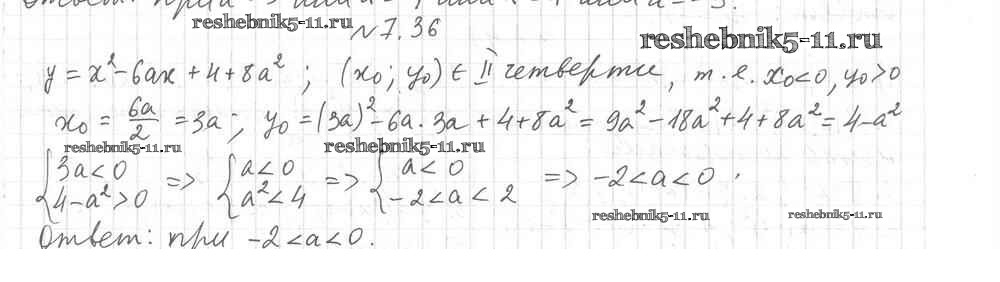 reshebnik5-11.ru
№7.36
reshebnik5-11.ru
y = x² - 6ax + 4 + 8a² ; (x₀; y₀) ∈ II четверти, т.е. x₀<0, y₀>0
x₀ = 6a/2 = 3a; y₀ = (3a)² - 6a · 3a + 4 + 8a² = 9a² - 18a² + 4 + 8a² = 4 - a²
reshebnik5-11.ru
reshebnik5-11.ru
{3a<0 4-a²>0 => {a<0 a²<4 => {a<0 -2<a<2 => -2<a<0.
reshebnik5-11.ru
reshebnik5-11.ru
Ответ: при -2<a<0.